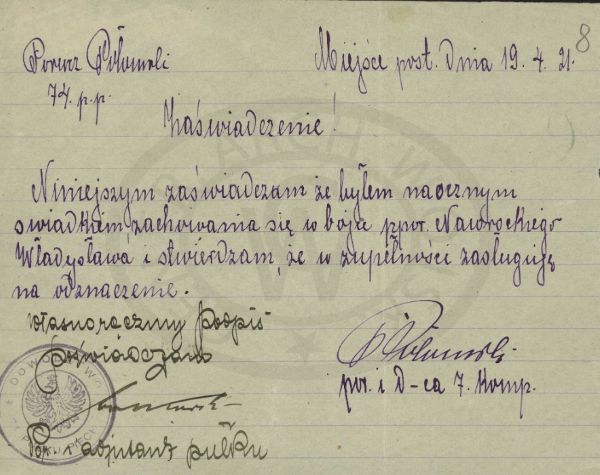 8
Porucz Połomski Miejsce post. Dnia 19. 4. 21.
74. p.p.
Zaświadczenie!
Niniejszym zaświadczam że byłem naocznym
świadkiem zachowania się w boju ppor. Nawrockiego
Władysława i stwierdzam, że w zupełności zasługuje
na odznaczenie.
własnoręczny podpis
poświadczam
Połomski
por. i D-ca 7. Komp.
por. i adjutant pułku